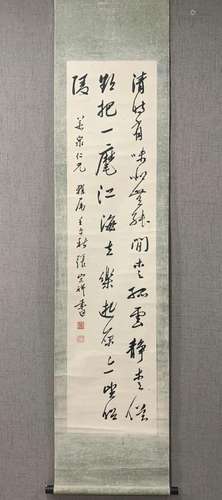 清時有味是無能閒愛孤雲靜愛僧
欲把一麾江海去樂遊原上望昭
陵
泉仁兄 雅屬 壬午秋 張宗祥書